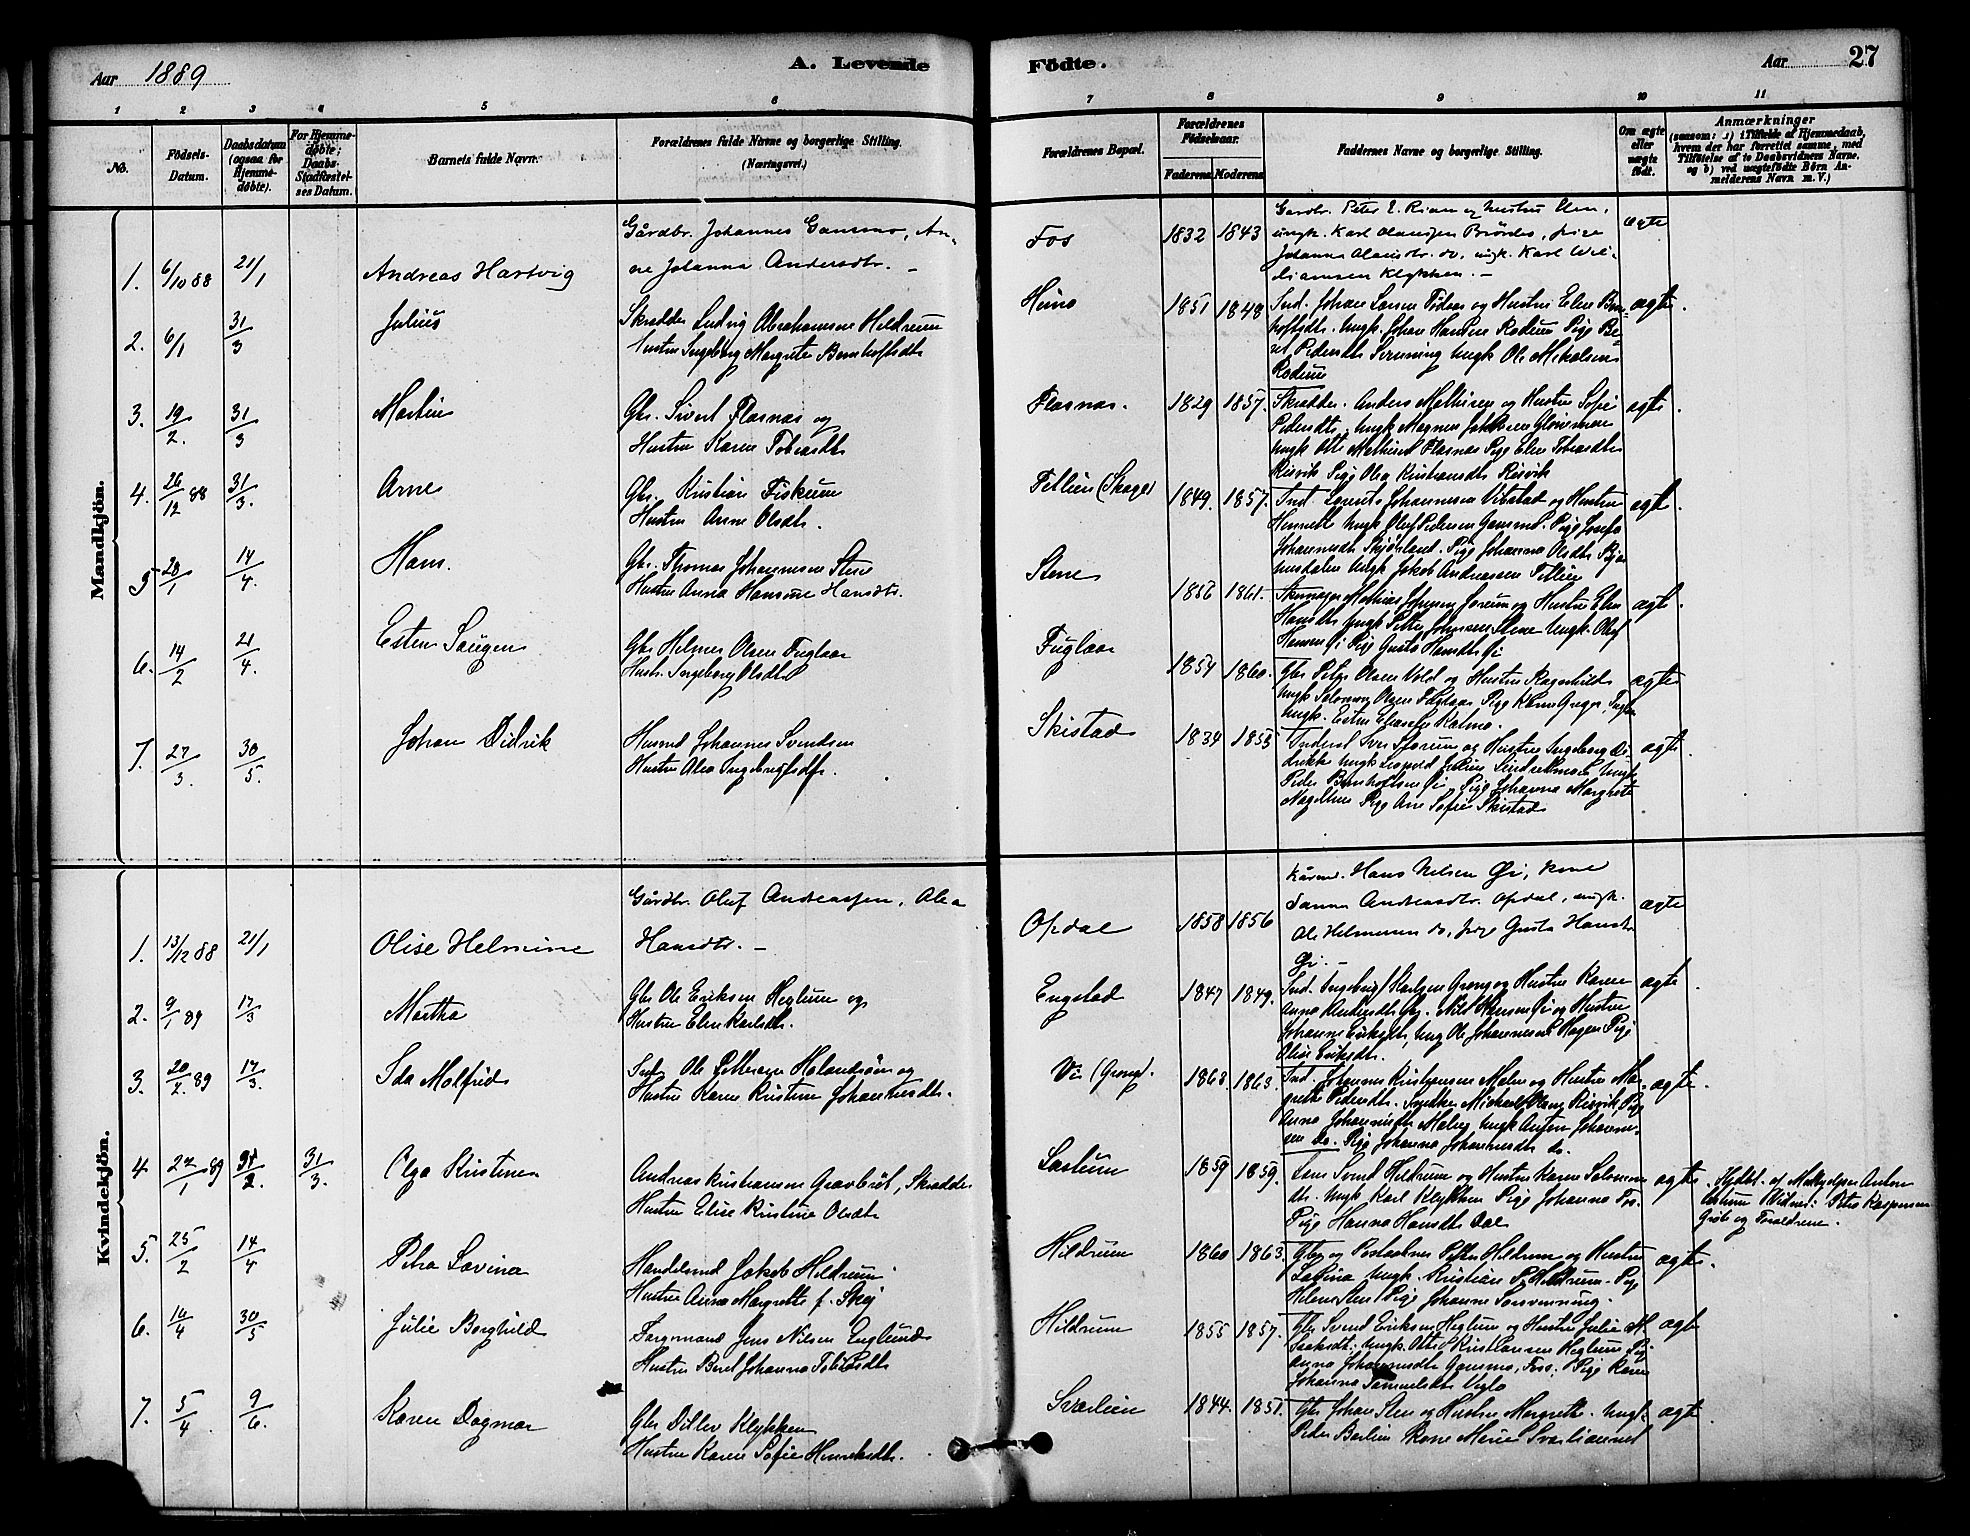 Aar 1889
A. Levende
Födte.
Aar
27
1 2 3 4 5 6
7 8 9 10 11
No.
Födsels-Datum.
Daabsdatum (ogsaa for Hjemmedöbte).
For Hjemmedöbte; Daabs-Stadfæstelses Datum.
Barnets fulde Navn.
Forældrenes fulde Navne og borgerlige Stilling.
(Næringsvei.)
Forældrenes Bopæl.
Forældrenes Födselsaar.
Faderens Moderens
Faddernes Navne og borgerlige Stilling.
Om ægte eller uægte født.
Anmærkninger
(saasom: a) i Tilfælde af Hjemmedaab,
hvem der har forrettet samme, med
Tilföielse af to Daabsvidners Navne,
og b) ved uægtefödte Börn An-
melderens Navn m. V.)
Mandkjön.
1. 6/10 88 21/1 Andreas Hartvig
Gårdbr. Johannes Gansmo, An-
ne Johanna Andersdtr. —
Fos 1832 1843
Gårdbr. Peter E. Rian og hustru
ungk. Karl Olaussen Brördes, pige
Johanna Olausdtr. do, ungk. Karl Wil-
liamsen Klykken. —
ægte
2. 6/1 31/3 Julius
Skrædder Ludvig Abrahamsen Hildrum
Hustru Ingeborg Margrete Bernhoftsdtr
Himo 1851 1848
Ind. Johan Larsen og Hustru Elen Bern-
hoftsdtr. Ungk. Johan Hansen Rodum Pige Be-
ret Pedersdtr Ungk Ole Mikalsen
Rodum
ægte.
3. 19/2. 31/3 Martin
Gbr. Sivert Flasnas og
Hustru Karen Tobiasdtr
Flasnas. 1829 1857.
Skrædder. Anders Mathisen og Hustru Sofie
Pedersdtr. Ungk Magnus
Ungk Otto Mathisen Flasnas Pige Elen Tobiasdtr
Risvik Pige Olea Kristiansdtr Risvik
ægte.
4. 26/12 88 31/3. Arne
Gbr. Kristian Fiskum
Hustru Anne Olsdtr.
Tetlien (Skage) 1849. 1857.
Ind. Lorents Johannesen og Hustru
Henrette Ungk Oluf Pedersen Gansmo. Pige Josefa
Johannesdtr Pige Johanna Olsdtr
Ungk Jakob Andreassen Tetlien
ægte.
5 20/1 14/4. Hans.
Gbr. Thomas Johannesen Stene
Hustru Anna Hansine Hansdtr.
Stene 1856 1861.
Mathias Johnsen og Hustru Elen
Hansdtr Ungk Petter Johnsen Stene Ungk. Oluf
Hansen Øi Pige Gusta Hansdtr Øi
ægte.
6. 14/2 21/4. Esten Saugen
Gbr Helmer Olsen Fuglaar
Hustr. Ingeborg Olsdtr
Fuglaar 1854 1860.
Gbr Peter Olsen Vold og Hustru Ragnhild
Ungk Salomon Olsen Pige Karen
Ungk. Esten
ægte
7. 27/3. 30/5. Johan Didrik
Husmd Johannes Svendsen
Hustru Olea Ingebrigtsdtr.
Skistad 1834 1855
Inderst Iver Sjorum og Hustru Ingeborg Di-
drikke Ungk Leopold Julius Lindsetmo Ungk
Peder Bernhoftsen Øi Pige Johanna Margrete
Pige Ane Sofie Skistad
ægte.
Kvindekjön.
1. 13/12 88 21/1 Olise Helmine
Gårdbr. Oluf Andreassen, Olea
Hansdtr. —
Opdal 1858 1856
Kårmd. Hans Nilsen Øi, kone
Sanna Andreasdtr. Opdal, ungk.
Ole Helmersen do, pige Gusta Hansdtr.
Øi. —
ægte
2. 9/1 89 17/3 Martha
Gbr Ole Eriksen Heglum og
Hustru Elen Karlsdtr.
Engstad 1847 1849.
Ind. Ingebrigt Karlsen Grong og Hustru Karen
Anna Andersdtr Gbr. Nils Hansen Øi og Hustru
Johanna Eriksdtr, Ungk Ole Johannesen Hagen Pige
Olise Eriksdtr.
ægte.
3. 20/2. 89 17/3. Ida Malfrid
Ind Ole Pettersen Holandsøm og
Hustru Karen Kristine Johannesdtr.
Vie (Grong). 1863 1863.
Ind. Johannes Kristiansen Malm og Hustru Mar-
grete Pedersdtr. Snekker Michael Risvik, Pige
Anna Johannesdtr Malm Ungk Anton Johannes-
sen do. Pige Johanna Johannesdtr do.
ægte.
4 27/1 89 /2. 31/3. Olga Kristine
Andreas Kristiansen Gravbröt, Skrædder
Hustru Elise Kristine Olsdtr
Lastum 1859 1859.
Lens. Svend Hildrum og Hustru Karen Salomons-
dtr. Ungk Karl Klykken Pige Johanna Fos.
Pige Hanna Hansdtr Dal
ægte.
Hjdbt. af Medhjelper Anton
Lastum Vidner: Petro Kaspersen
Grøb og Forældrene.
5. 25/2 14/4 Petra Lovina
Handelsmd Jakob Hildrum
Hustru Anna Margrette f. Skej
Hildrum 1860 1863.
Gbr og Postaabner Petter Hildrum og Hustru
Lovina Ungk. Kristian P Hildrum. Pige
Helene Pige Johanna
ægte.
6. 14/4 30/5 Julie Borghild
Forgmand Jens Nilsen Englund
Hustru Beret Johanna Tobiasdtr
Hildrum 1855 1857.
Gbr Svend Eriksen Heglum og Hustru Julie M.
Isaksdtr; Ungk. Otto Kristiansen Heglum, Pige
Anna Johannesdtr Gansmo, Foss; Pige Karen
Johanna Samuelsdtr Veglo
ægte
7. 5/4 9/6. Karen Dagmar
Gbr Ditlev Klykken
Hustru Karen Sofie Henriksdtr.
Svarlien 1844. 1851.
Gbr Johan Sten og Hustru Margrethe. Ungk.
Peder Barlien Kone Marie Svarliannet
ægte.